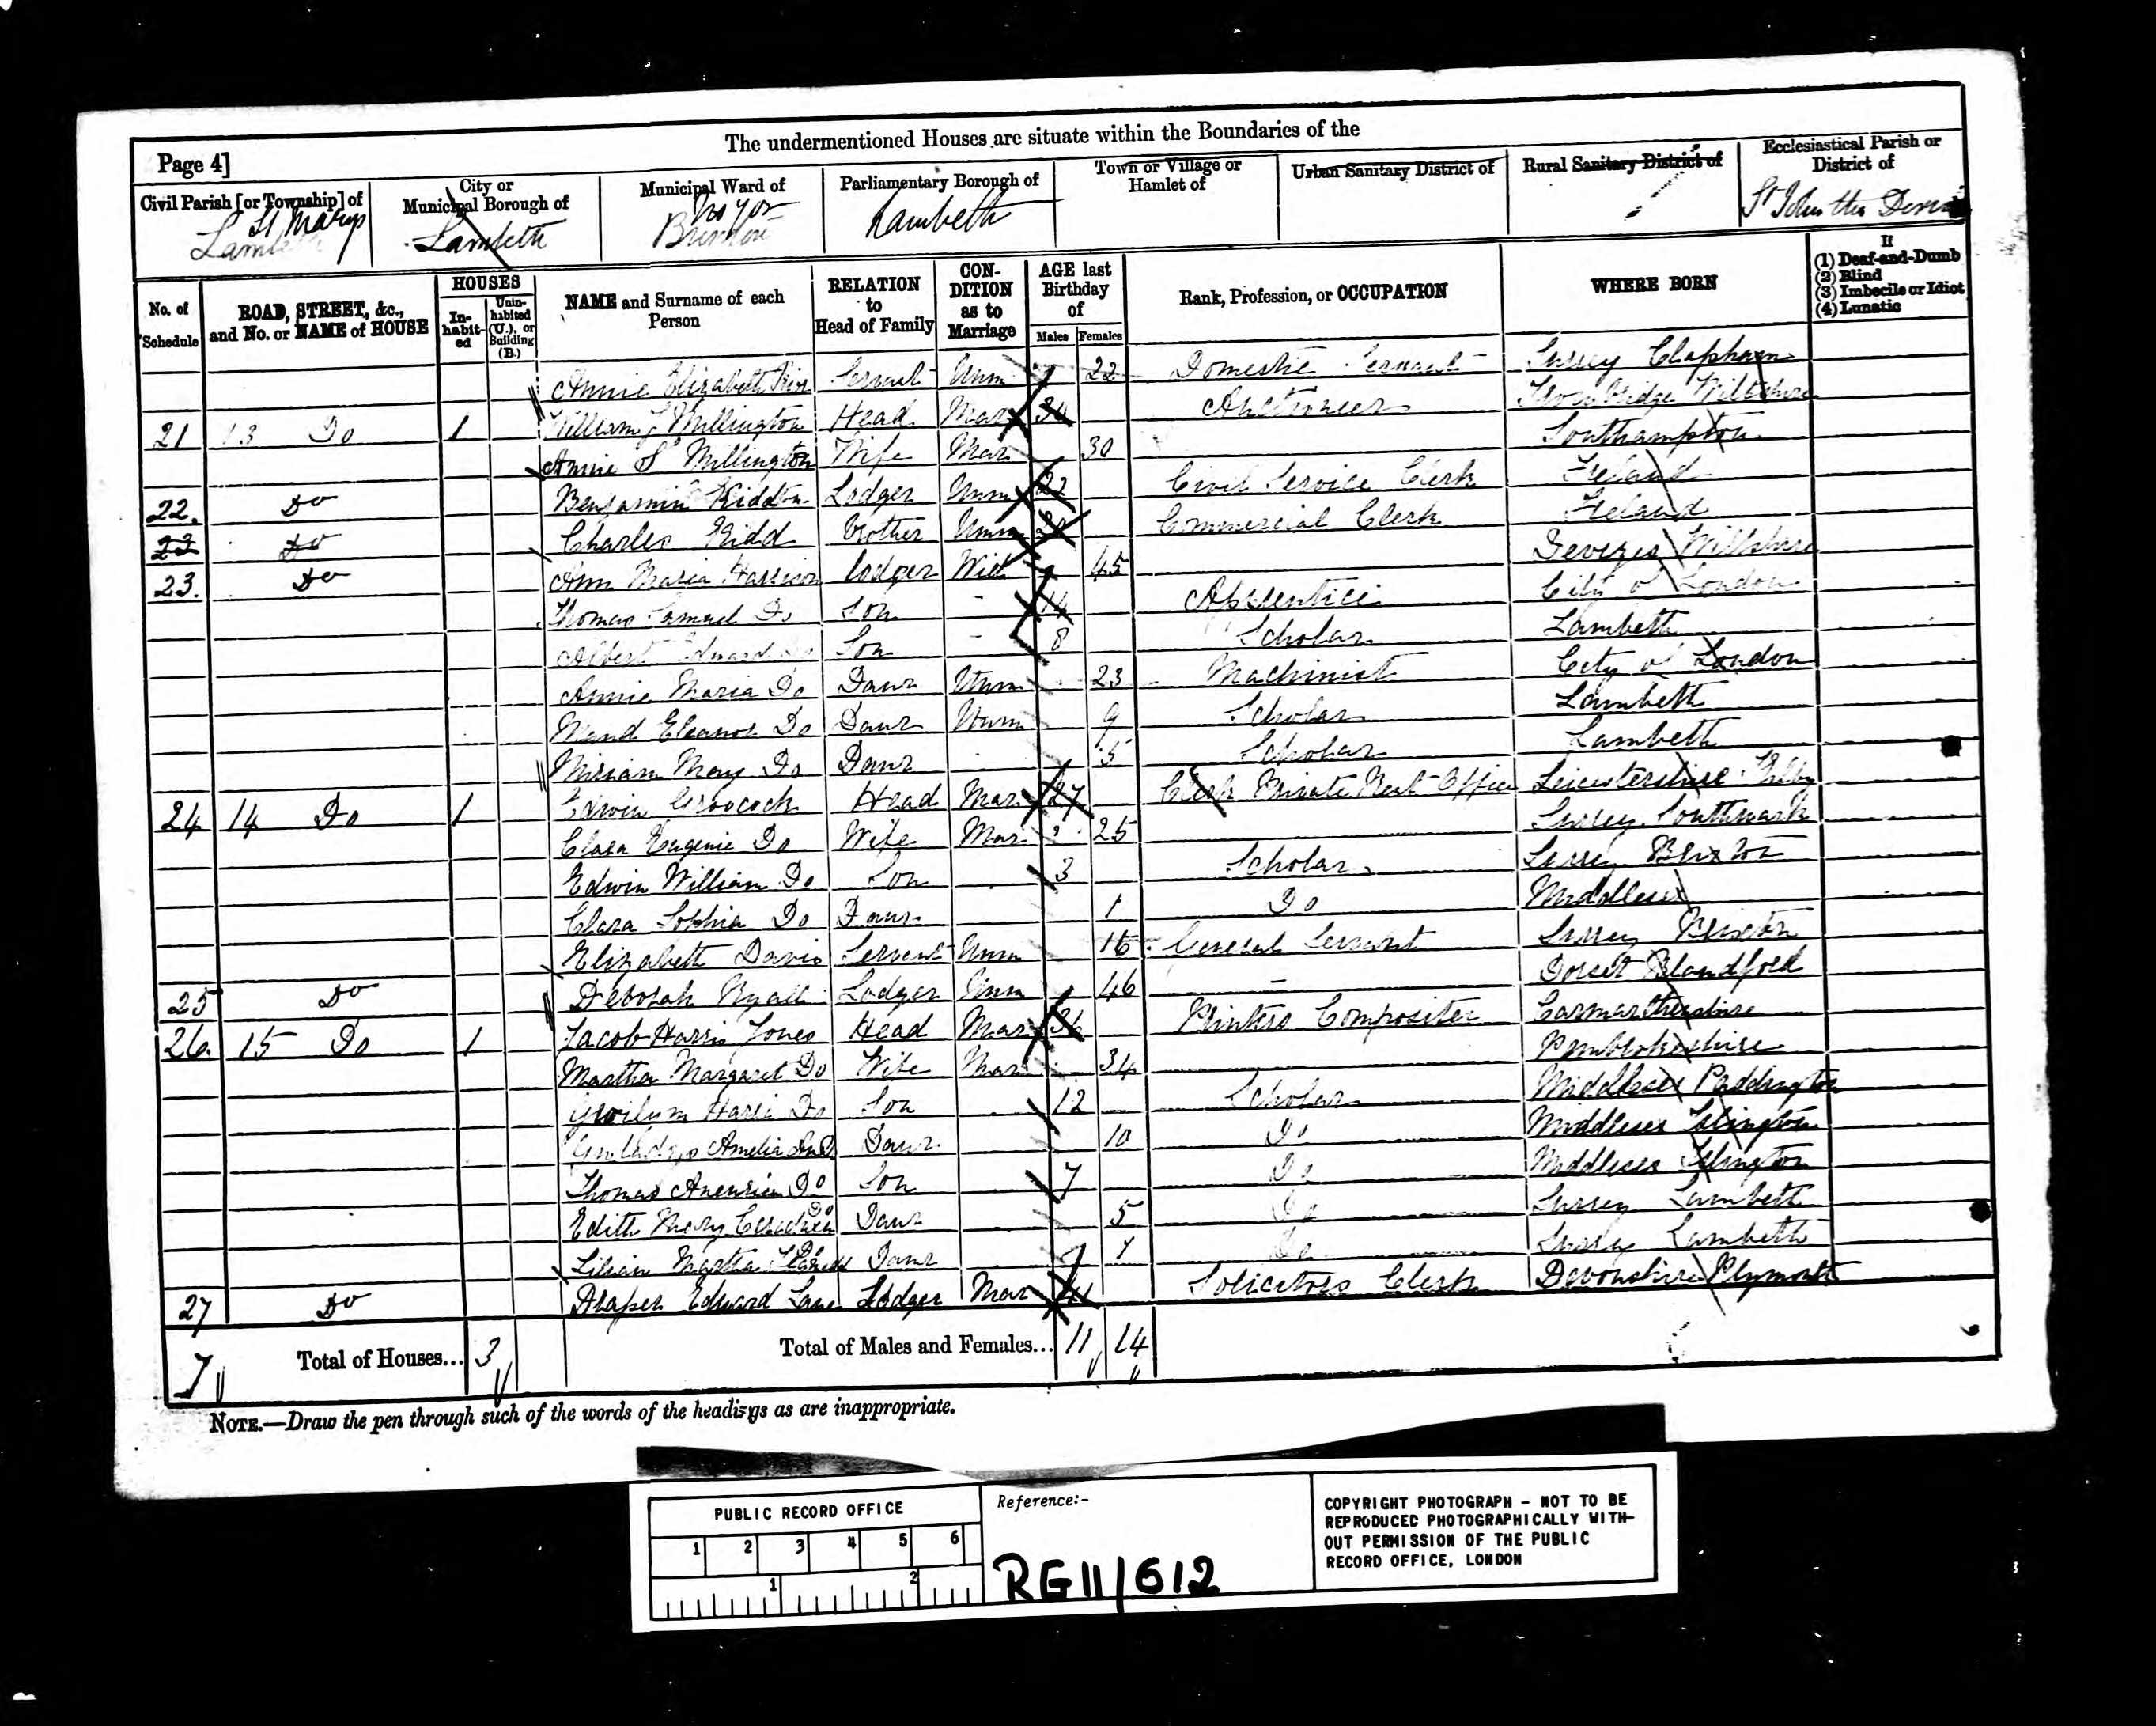 The undermentioned Houses are situate within the Boundaries of the
Page 4]
Civil Parish [or Township] of
St Marys
Lambeth
City or
Municipal Borough of
Lambeth
Municipal Ward of
Brixton
Parliamentary Borough of
Lambeth
Town or Village or
Hamlet of
Urban Sanitary District of
Rural Sanitary District of
Ecclesiastical Parish or
District of
St John the
No. of
Schedule
ROAD, STREET, &c.,
and No. or NAME of HOUSE
HOUSES
In-
habit-
ed
Unin-
habited
(U.), or
Building
(B.)
NAME and Surname of each
Person
RELATION
to
Head of Family
CON-
DITION
as to
Marriage
AGE last
Birthday
of
Males Females
Rank, Profession, or OCCUPATION
WHERE BORN
If
(1) Deaf-and-Dumb
(2) Blind
(3) Imbecile or Idiot
(4) Lunatic
Annie Elizabeth Servant Unm 22 Domestic Servant Surrey Clapham
21 13 Do 1 William Millington Head Mar Auctioneer Trowbridge Wiltshire
Annie S Millington Wife Mar 30 Southampton
22. Do Benjamin Kidd Lodger Unm 22 Civil Service Clerk Ireland
23 Do Charles Kidd Brother Unm Commercial Clerk Ireland
23. Do Ann Maria Harrison Lodger Wid 45 Devizes Wiltshire
Thomas Samuel Do Son - 14 Apprentice City of London
Albert Edward Do Son - 8 Scholar Lambeth
Annie Maria Do Daur Unm 23 Machinist City of London
Maud Eleanor Do Daur Unm 9 Scholar Lambeth
Miriam May Do Daur 5 Scholar Lambeth
24 14 Do 1 Edwin Head Mar 27 Clerk Private Office Leicestershire
Clara Eugenie Do Wife Mar 25 Surrey Southwark
Edwin William Do Son 3 Scholar Surrey Brixton
Clara Sophia Do Daur 1 Do Middlesex
Elizabeth Davis Servant Unm 16 General Servant Surrey Brixton
25 Do Deborah Lodger Unm 46 - Dorset Blandford
26. 15 Do 1 Jacob Harris Jones Head Mar 36 Printers Compositer Carmarthenshire
Martha Margaret Do Wife Mar 34 Pembrokeshire
Gwilym Harris Do Son 12 Scholar Middlesex Paddington
Amelia Daur 10 Do Middlesex Islington
Thomas Aneurin Do Son 7 Do Middlesex Islington
Edith Mary Do Daur 5 Do Surrey Lambeth
Lilian Martha Do Daur 1 Do Surrey Lambeth
27 Do Draper Edward Lane Lodger Mar 41 Solicitors Clerk Devonshire Plymouth
7 Total of Houses... 3 Total of Males and Females... 11 14
NOTE.—Draw the pen through such of the words of the headings as are inappropriate.
PUBLIC RECORD OFFICE
1 2 3 4 5 6
1 2
Reference:-
RG11/612
COPYRIGHT PHOTOGRAPH - NOT TO BE
REPRODUCED PHOTOGRAPHICALLY WITH-
OUT PERMISSION OF THE PUBLIC
RECORD OFFICE, LONDON